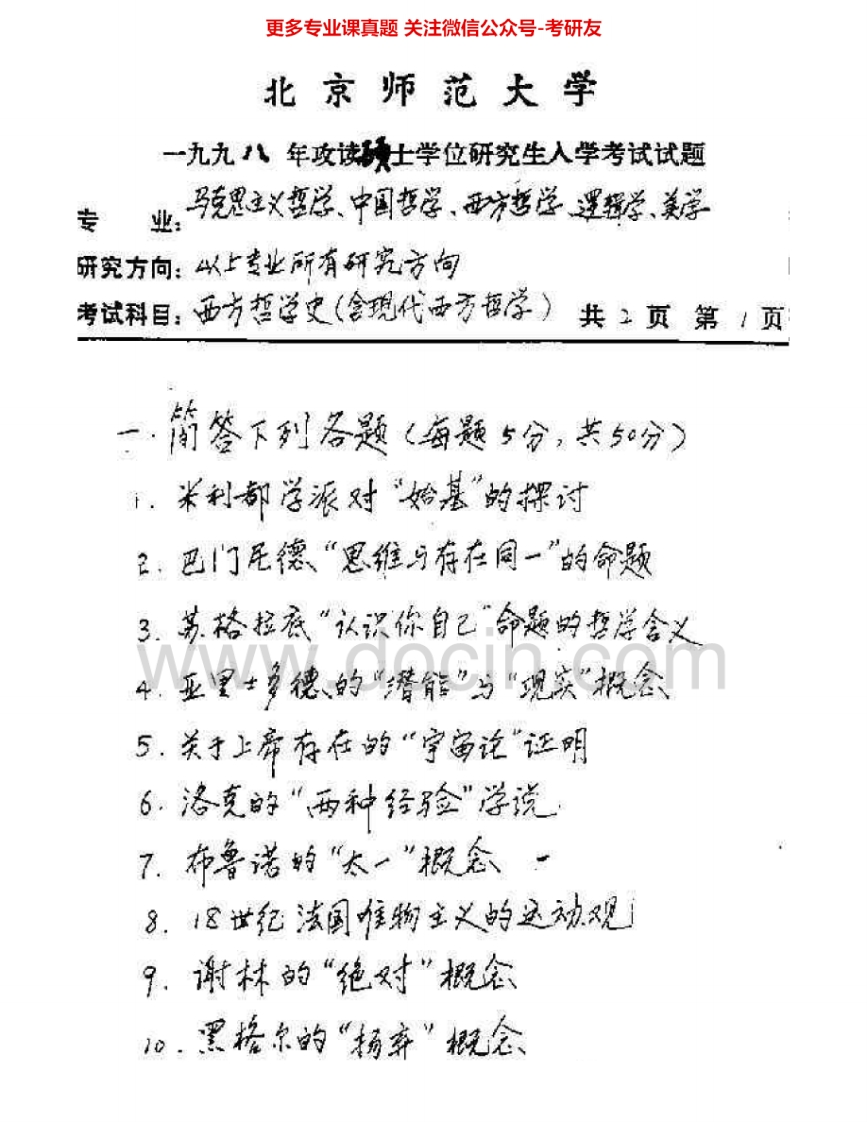 更多专业课真题 关注微信公众号-考研友
北京师范大学
一九九八年攻读硕士学位研究生入学考试试题
专 业: 马克思主义哲学、中国哲学、西方哲学、逻辑学、美学
研究方向: 以上专业所有研究方向
考试科目: 西方哲学史(含现代西方哲学) 共 2 页 第 1 页
一.简答下列各题(每题5分,共50分)
1. 米利都学派对“始基”的探讨
2. 巴门尼德“思维与存在同一”的命题
3. 苏格拉底“认识你自己”命题的哲学含义
www.docin.com
4. 亚里士多德的“潜能”与“现实”概念
5. 关于上帝存在的“宇宙论”证明
6. 洛克的“两种经验”学说
7. 布鲁诺的“太一”概念
8. 18世纪法国唯物主义的运动观
9. 谢林的“绝对”概念
10. 黑格尔的“扬弃”概念